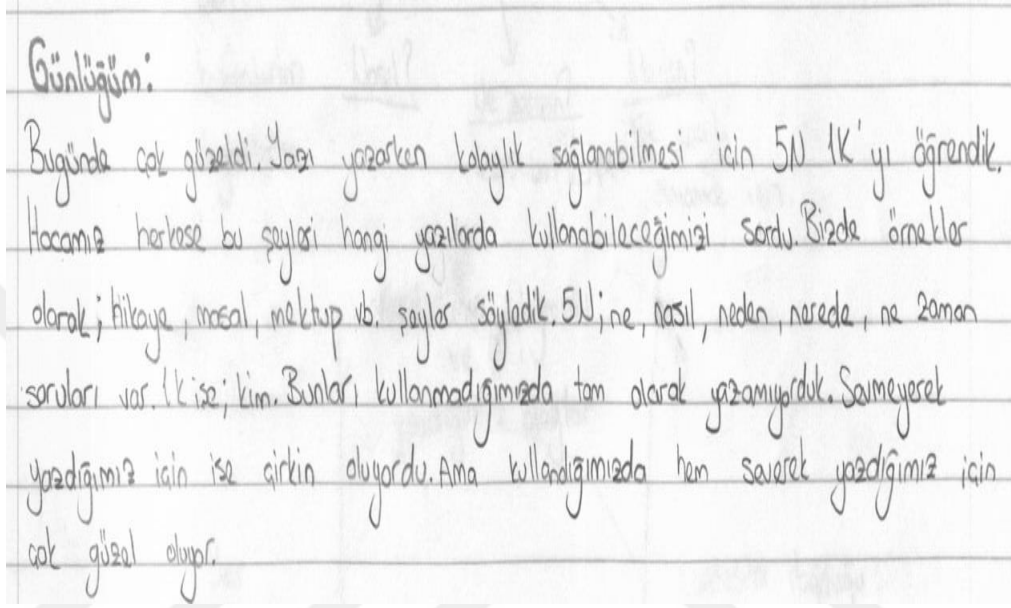 Günlüğüm:
Bugünde çok güzeldi. Yazı yazarken kolaylık sağlanabilmesi için 5N 1K'yı öğrendik.
Hocamız herkese bu şeyleri hangi yazılarda kullanabileceğimizi sordu. Bizde örnekler
olarak; hikaye, masal, mektup vb. şeyler söyledik. 5N; ne, nasıl, neden, nerede, ne zaman
soruları var. 1K ise; kim. Bunları kullanmadığımızda tam olarak yazamıyorduk. Sevmeyerek
yazdığımız için ise çirkin oluyordu. Ama kullandığımızda hem severek yazdığımız için
çok güzel oluyor.